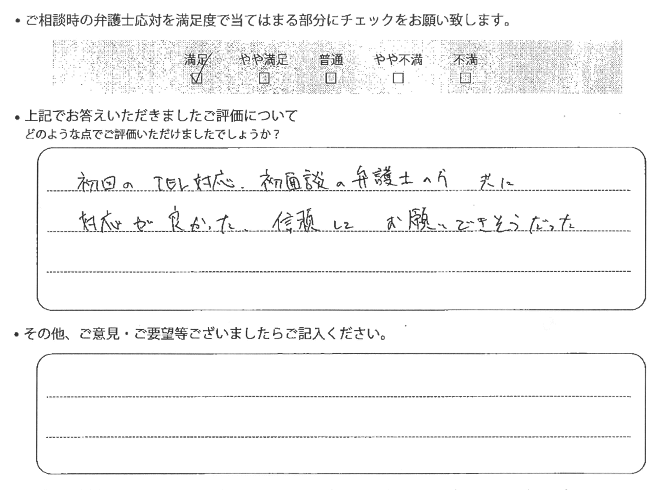 ・ご相談時の弁護士応対を満足度で当てはまる部分にチェックをお願い致します。
満足 やや満足 普通 やや不満 不満
☑ □ □ □ □
・上記でお答えいただきましたご評価について
どのような点でご評価いただけましたでしょうか？
初回の TEL対応、初面談の弁護士の方 共に
対応が良かった、信頼して お願いできそうだった
・その他、ご意見・ご要望等ございましたらご記入ください。